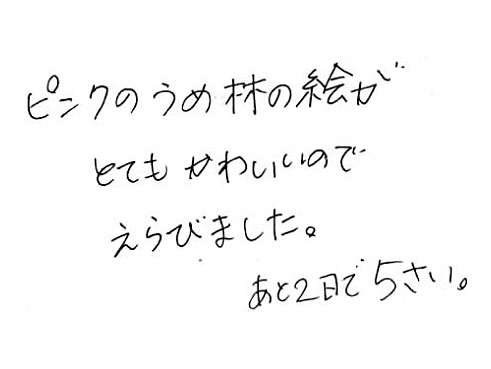 ピンクのうめ林の絵が
とてもかわいいので
えらびました。
あと2日で5さい。